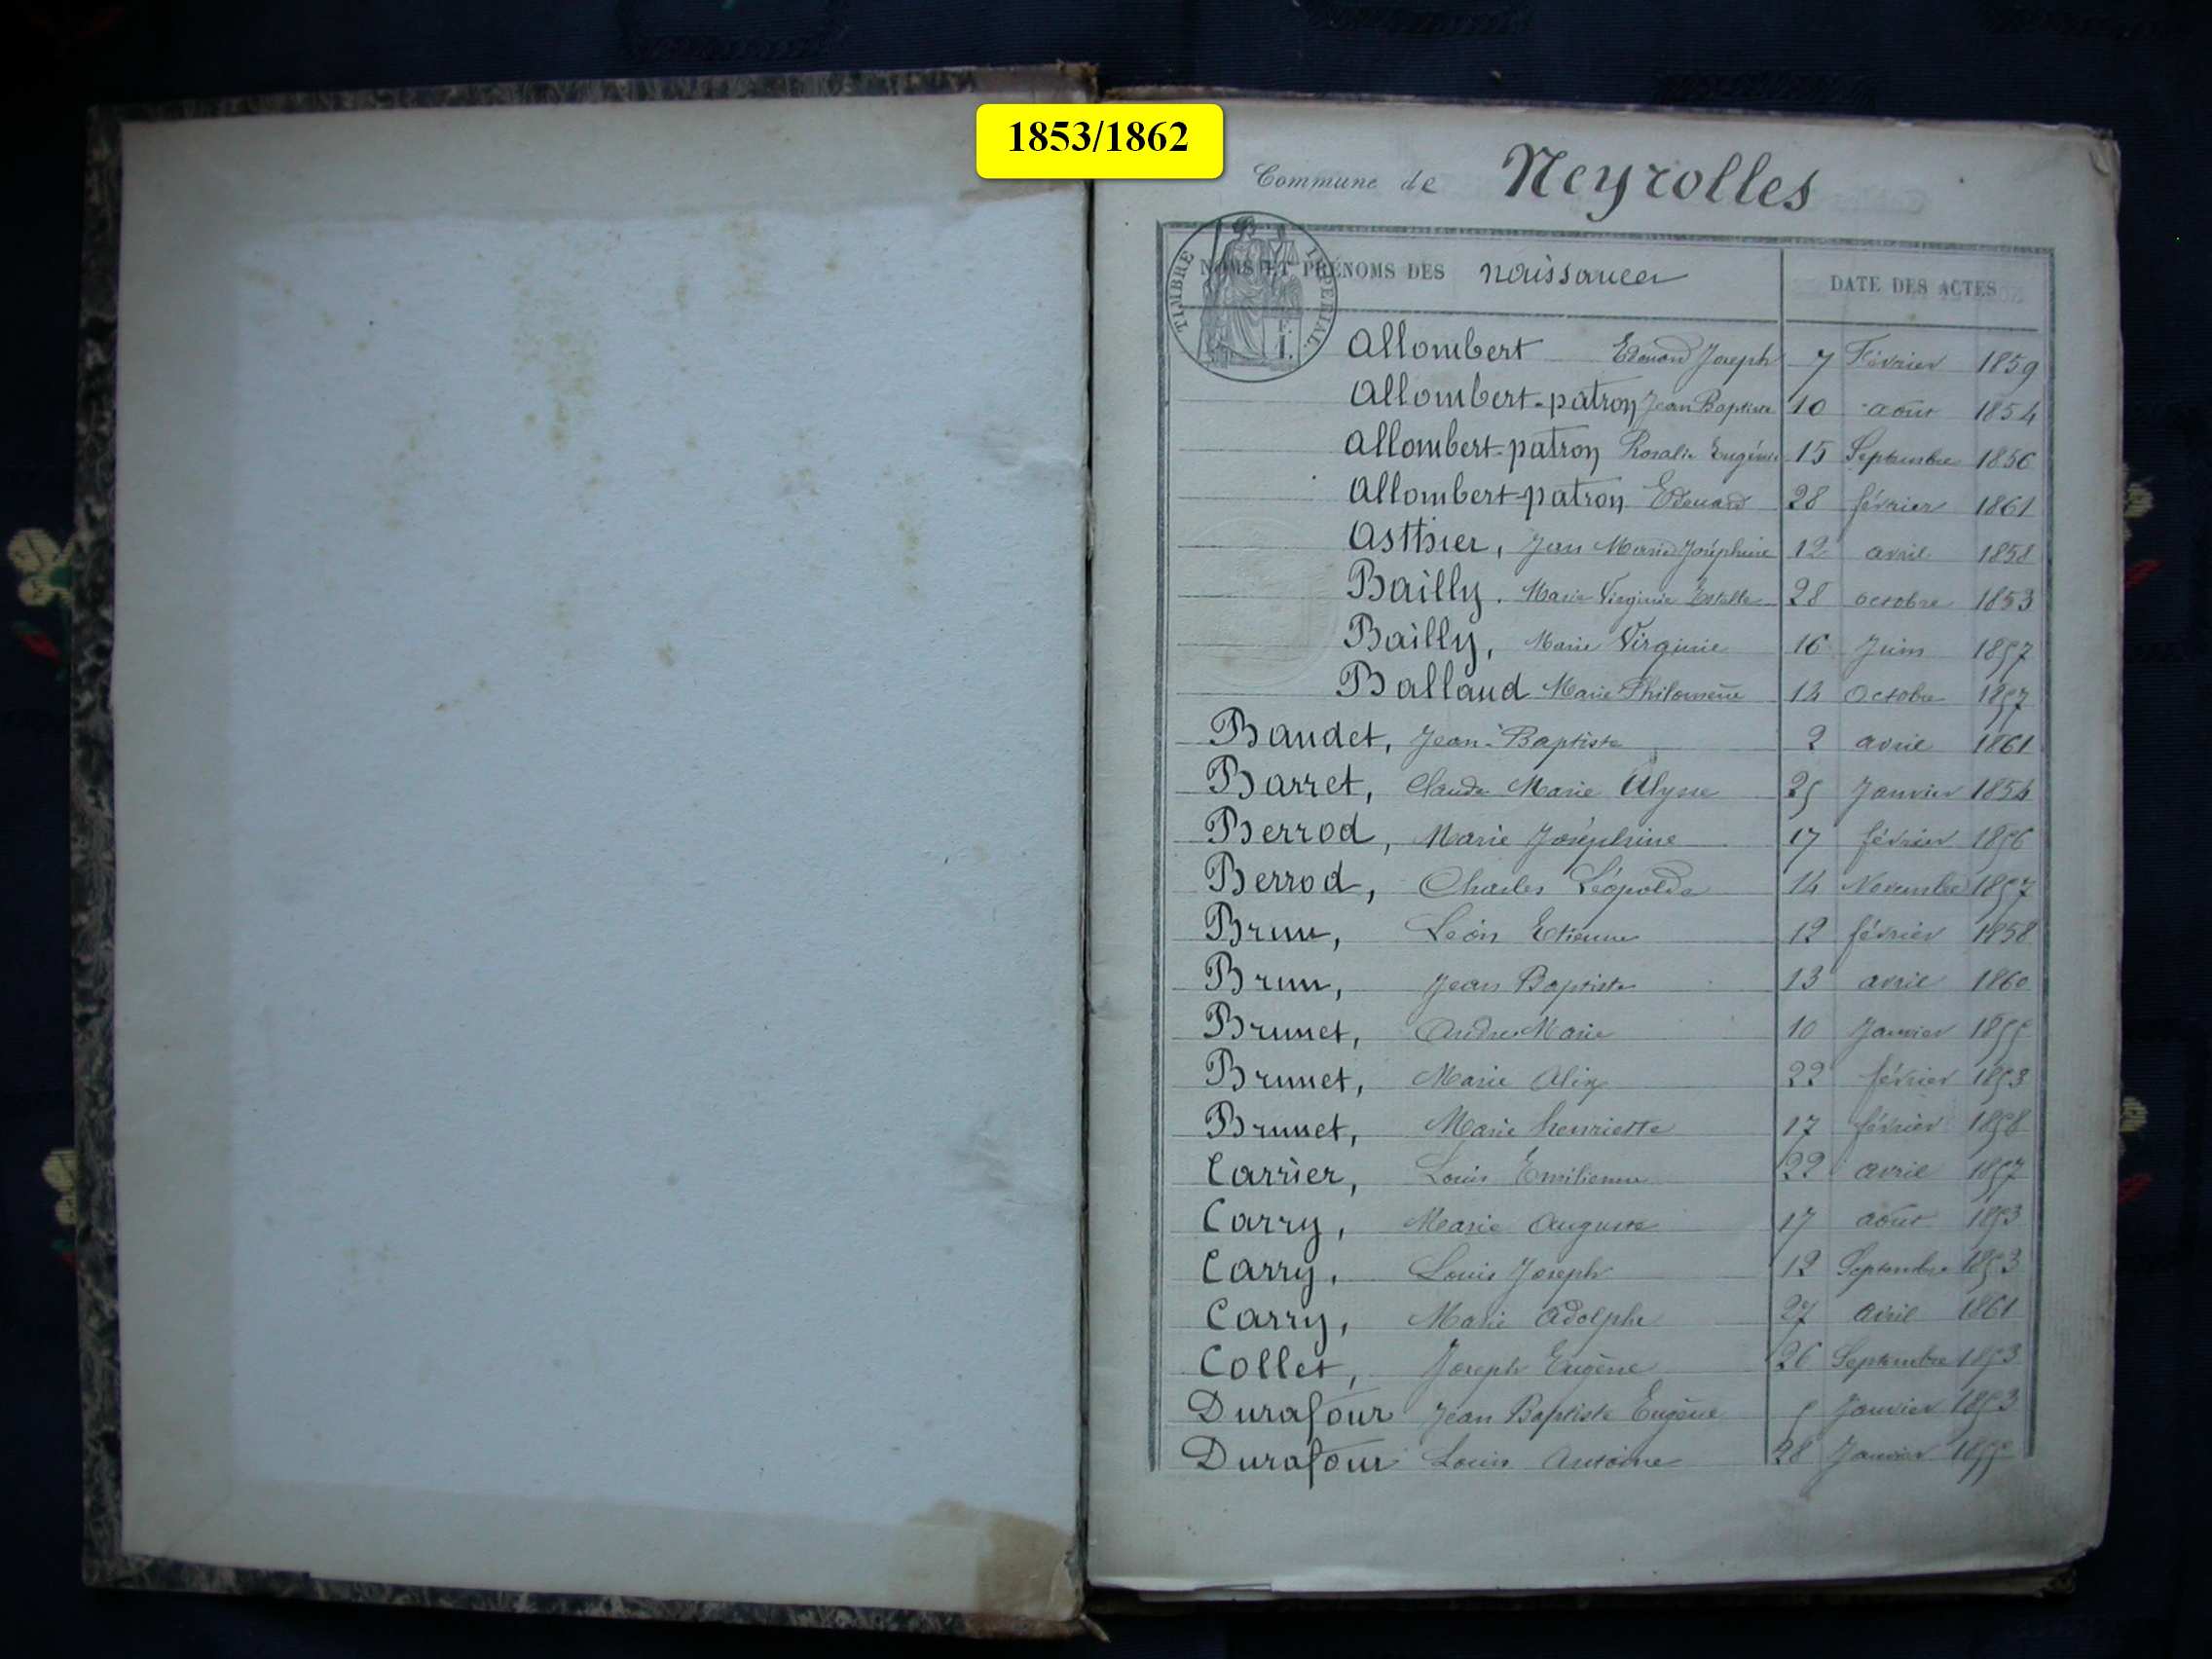 1853/1862
Commune de Neyrolles
TIMBRE IMPERIAL
NOMS ET PRÉNOMS DES naissances DATE DES ACTES
Allombert Edouard Joseph 7 Février 1859
Allombert-patron Jean Baptiste 10 août 1854
Allombert-patron Rosalie Eugénie 15 Septembre 1856
Allombert-patron Edouard 28 février 1861
Asthier, Jean Marie Joséphine 12 avril 1858
Bailly. Marie Virginie Estelle 28 octobre 1853
Bailly, Marie Virginie 16 Juin 1857
Balland Marie Philomène 14 Octobre 1857
Baudet, Jean-Baptiste 2 avril 1861
Barret, Claude Marie Ulysse 25 Janvier 1854
Berrod, Marie Joséphine 17 février 1856
Berrod, Charles Léopold 14 Novembre 1857
Brun, Léon Etienne 12 février 1858
Brun, Jean Baptiste 13 avril 1860
Brunet, André Marie 10 Janvier 1855
Brunet, Marie Alix 22 février 1853
Brunet, Marie henriette 17 février 1858
Carrier, Louis 22 avril 1857
Carry, Marie Auguste 17 août 1853
Carry, Louis Joseph 12 Septembre 1853
Carry, Marie Adolphe 27 avril 1861
Collet, Joseph Eugène 26 Septembre 1853
Durafour Jean Baptiste Eugène 5 Janvier 1853
Durafour Louis Antoine 28 Janvier 1855